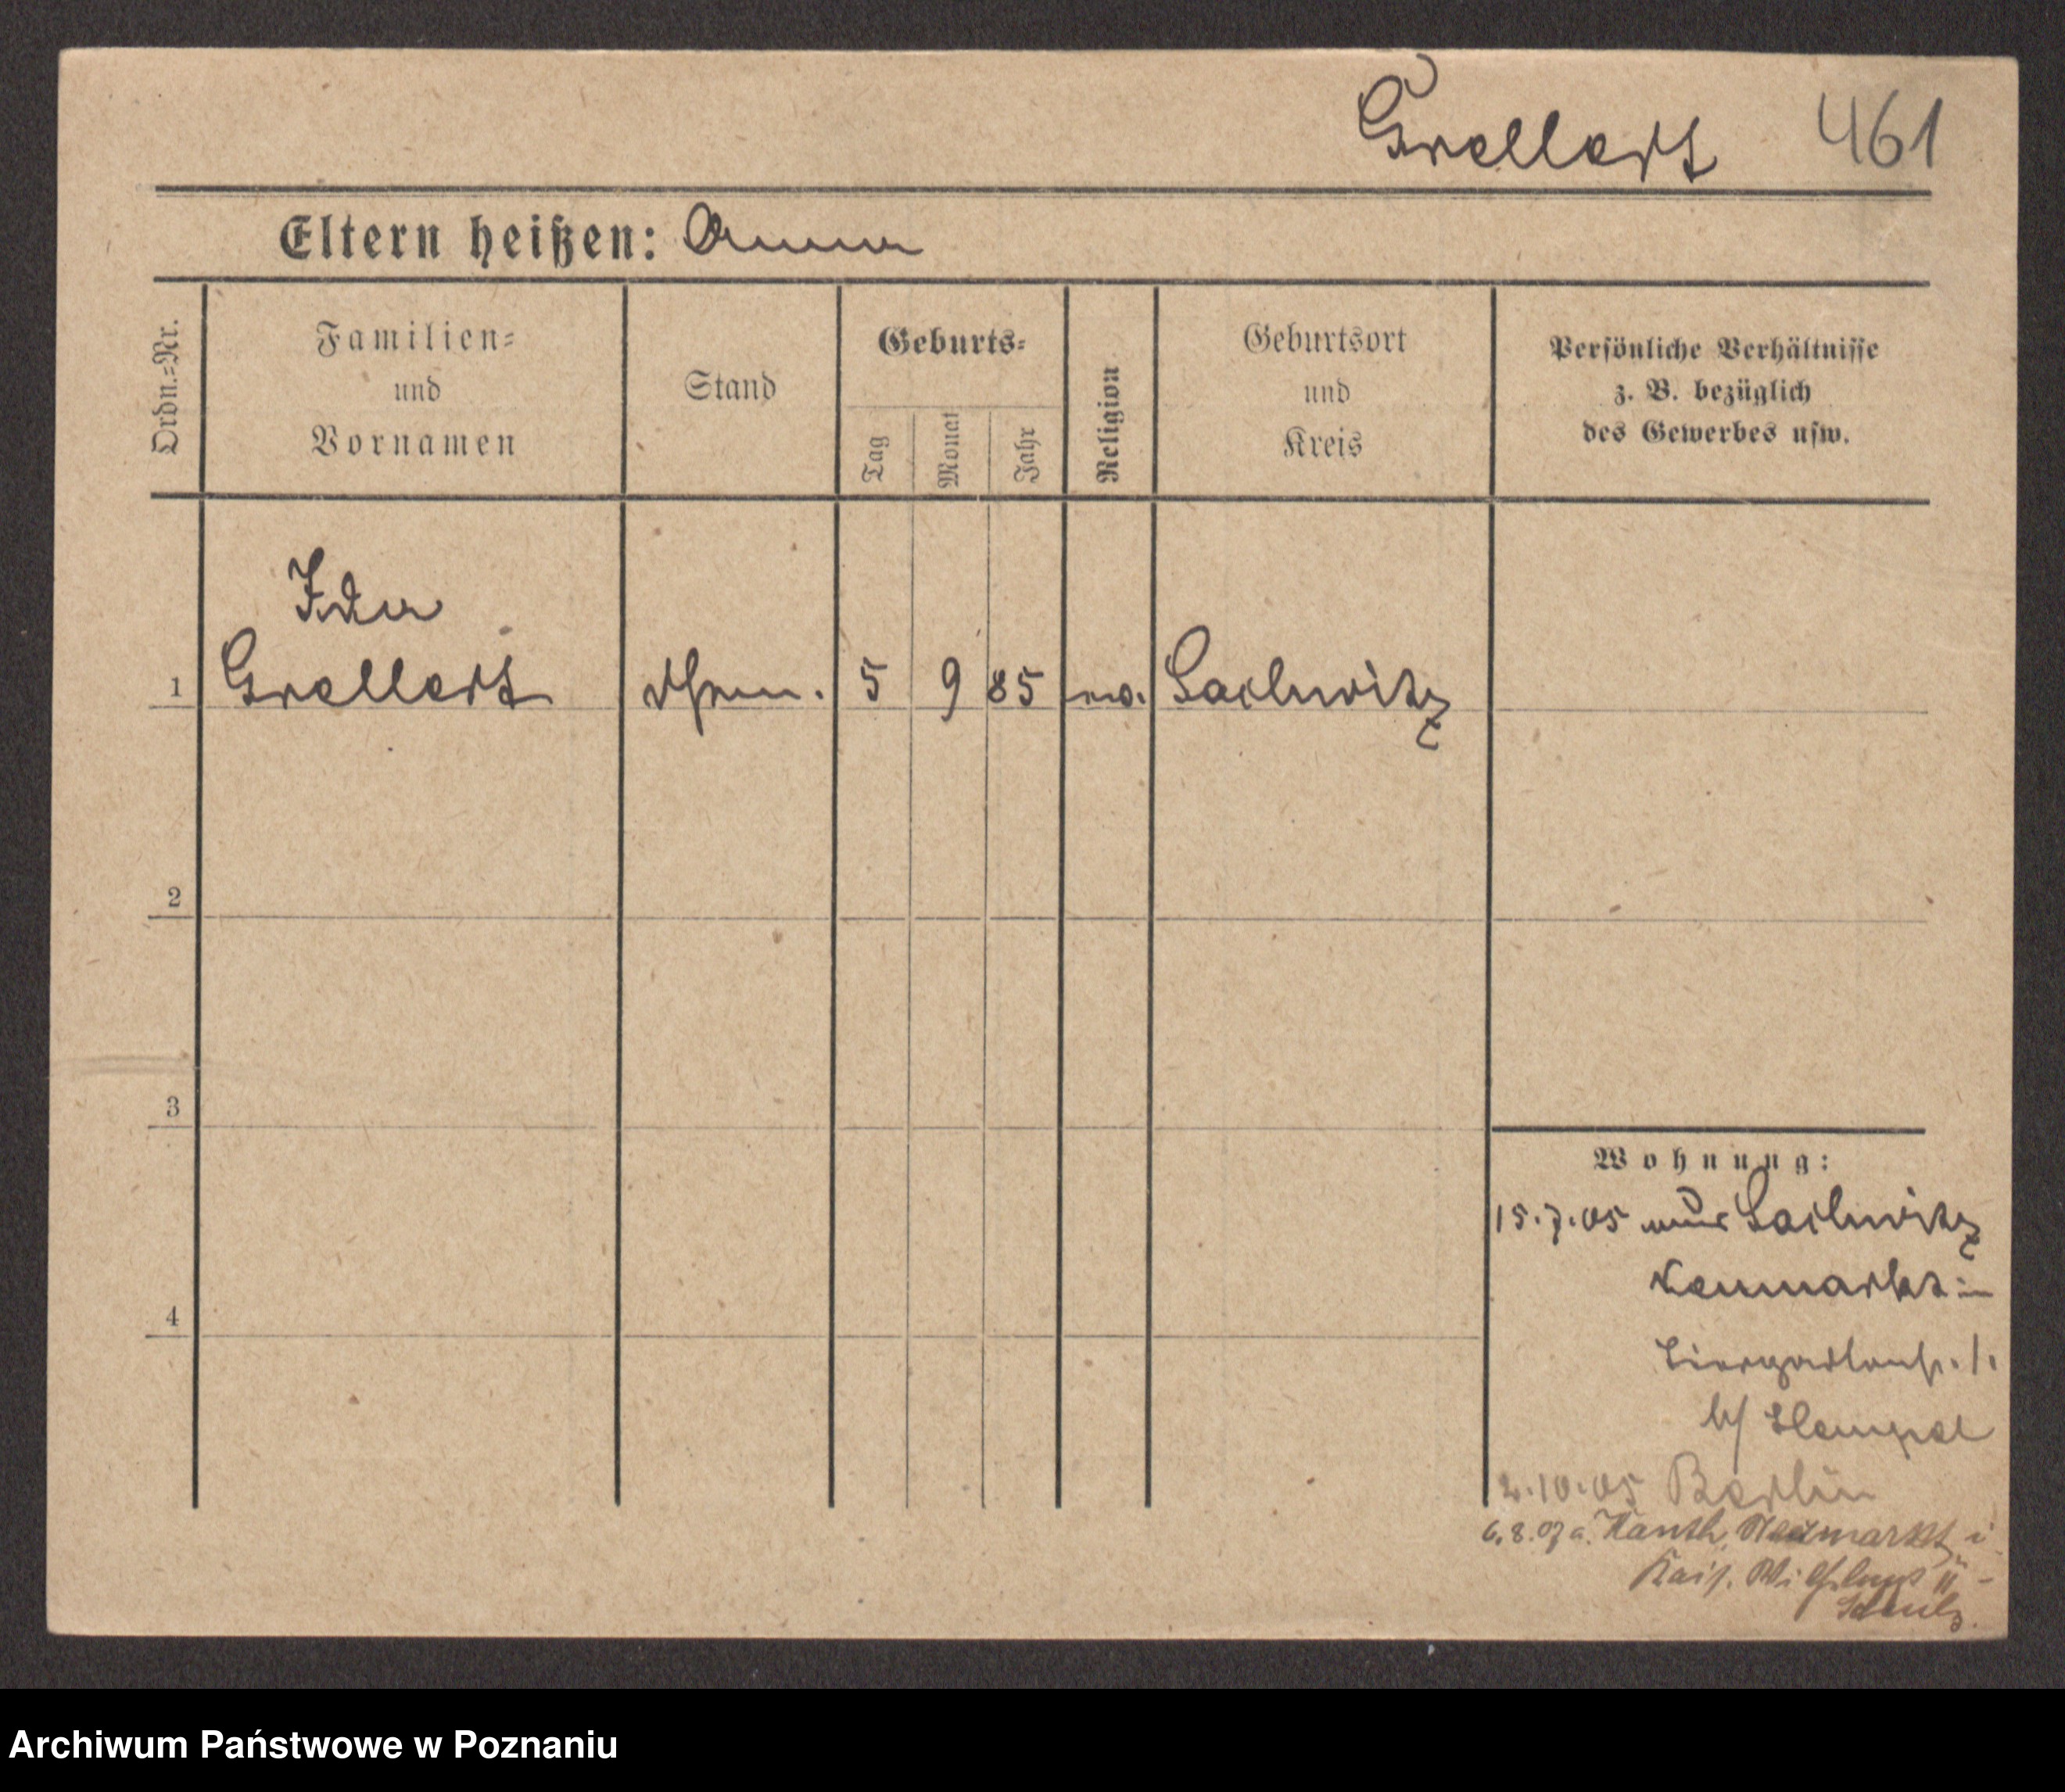 Grellert 461
Eltern heißen: Anna
Ordn.=Nr.
Familien=
und
Vornamen
Stand
Geburts=
Tag
Monat
Jahr
Religion
Geburtsort
und
Kreis
Persönliche Verhältnisse
z. B. bezüglich
des Gewerbes usw.
Ida
1 Grellert 5 9 85 ev. Sachwitz
2
3
4
Wohnung:
15.7.05 aus Sachwitz
Neumarkt
Tiergartenstr. 1.
b/ Hempel
2.10.05 Berlin
6.8.07 a. Kanth, Neumarkt i
Kais. Wilhelmstr 11 -
Schulz.
Archiwum Państwowe w Poznaniu